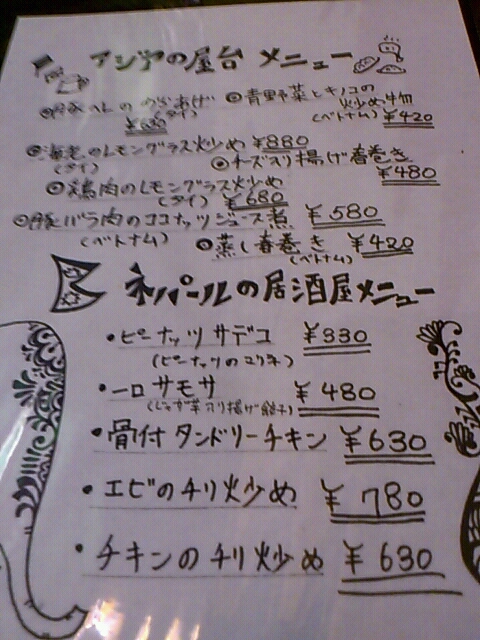 アジアの屋台 メニュー
◎豚ヘレのからあげ ◎青野菜とキノコの
(タイ) 炒め物
(ベトナム) ¥420
◎海老のレモングラス炒め ¥880
(タイ) ◎チーズ入り揚げ春巻き
¥480
◎鶏肉のレモングラス炒め
(タイ) ¥680
◎豚バラ肉のココナッツジュース煮 ¥580
(ベトナム) ◎蒸し春巻き ¥420
(ベトナム)
ネパールの居酒屋メニュー
・ピーナッツサデコ ¥330
(ピーナッツのマリネ)
・一口サモサ ¥480
(じゃが芋入り揚げ餃子)
・骨付タンドリーチキン ¥630
・エビのチリ炒め ¥780
・チキンのチリ炒め ¥630